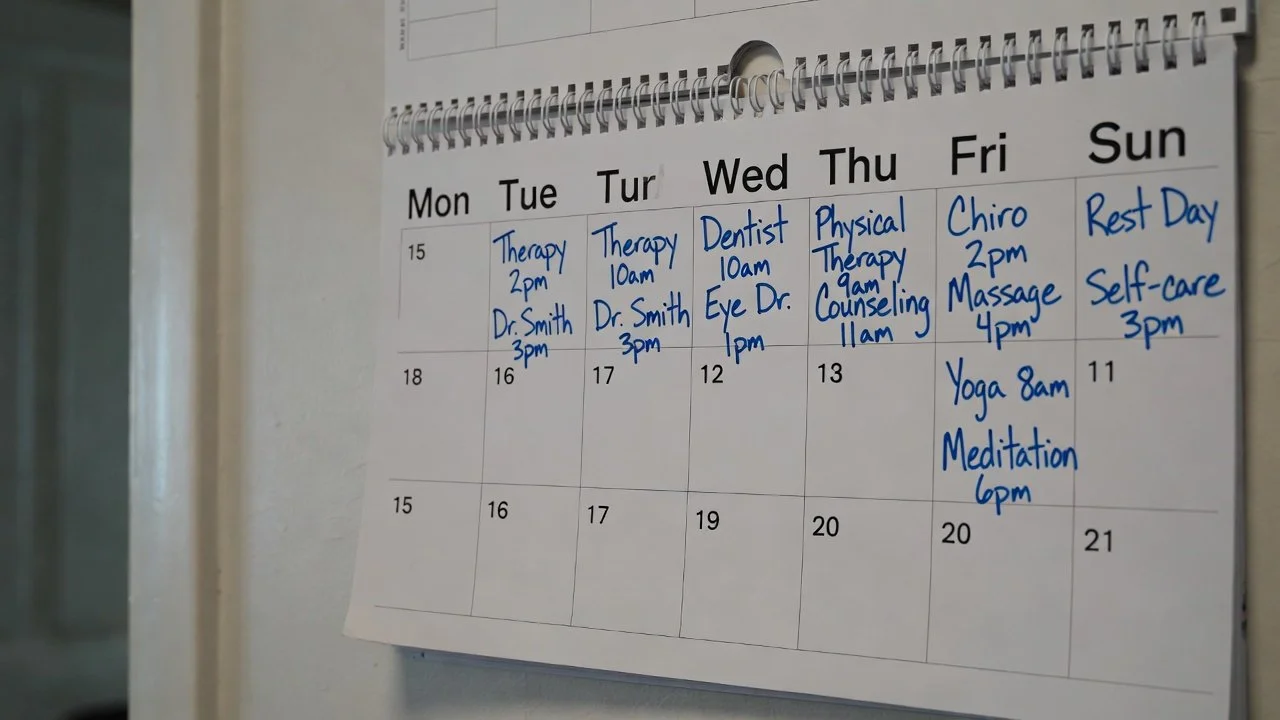 Mon Tue Tur Wed Thu Fri Sun
15
Therapy
2pm
Dr. Smith
3pm
Therapy
10am
Dr. Smith
3pm
Dentist
10am
Eye Dr.
1pm
Physical
Therapy
9am
Counseling
11am
Chiro
2pm
Massage
4pm
Rest Day
Self-care
3pm
18 16 17 12 13
Yoga 8am
Meditation
6pm
11
15 16 17 19 20 20 21